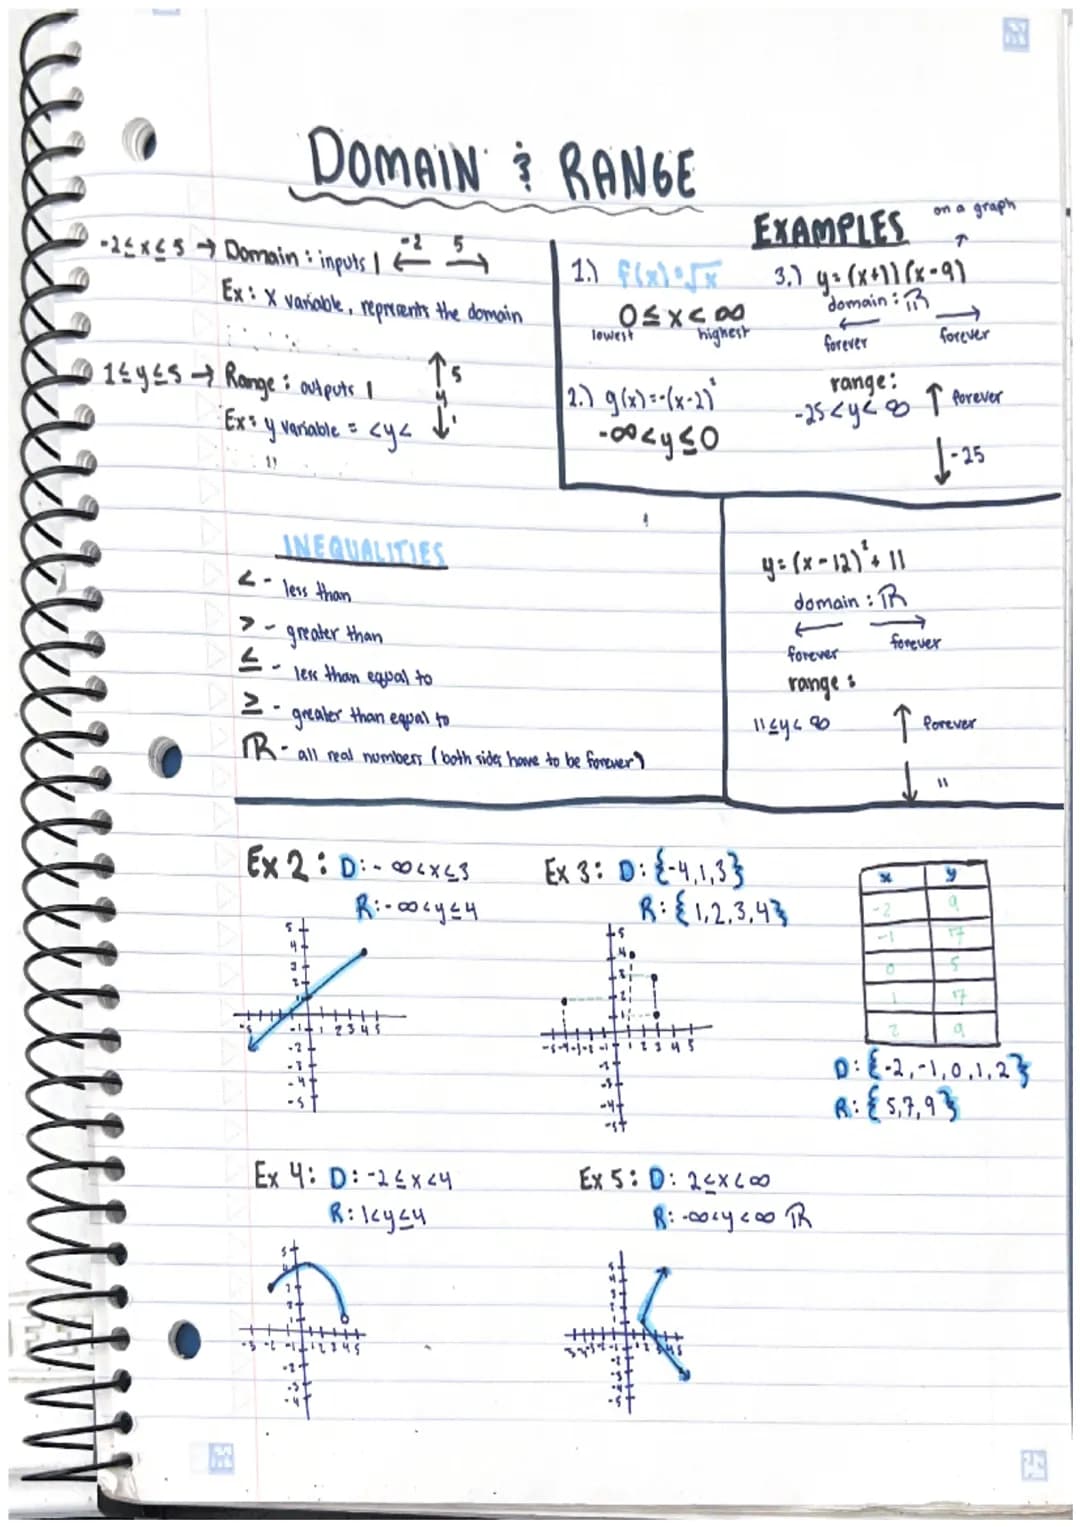 DOMAIN & RANGE
-2≤x≤5 → Domain: inputs | -2 5
Ex: X variable, represents the domain
1≤y≤5 → Range: outputs | 5
y
Ex: y variable = <y< 1
EXAMPLES
on a graph
1.) f(x)=√x
0≤x<∞
lowest highest
2.) g(x)=-(x-2)²
-∞<y≤0
3.) y=(x+1)(x-9)
domain: ℝ
forever forever
range:
-25<y<∞ forever
-25
INEQUALITIES
< - less than
> - greater than
≤ - less than equal to
≥ - greater than equal to
ℝ - all real numbers (both sides have to be forever)
y=(x-12)²+11
domain: ℝ
forever forever
range:
11≤y<∞ forever
11
Ex 2: D: -∞<x≤3
R: -∞<y≤4
Ex 3: D: {-4,1,3}
R: {1,2,3,4}
x y
-2 9
-1 7
0 5
1 7
2 9
D: {-2,-1,0,1,2}
R: {5,7,9}
Ex 4: D: -2≤x<4
R: 1<y≤4
Ex 5: D: 2≤x<∞
R: -∞<y<∞ ℝ